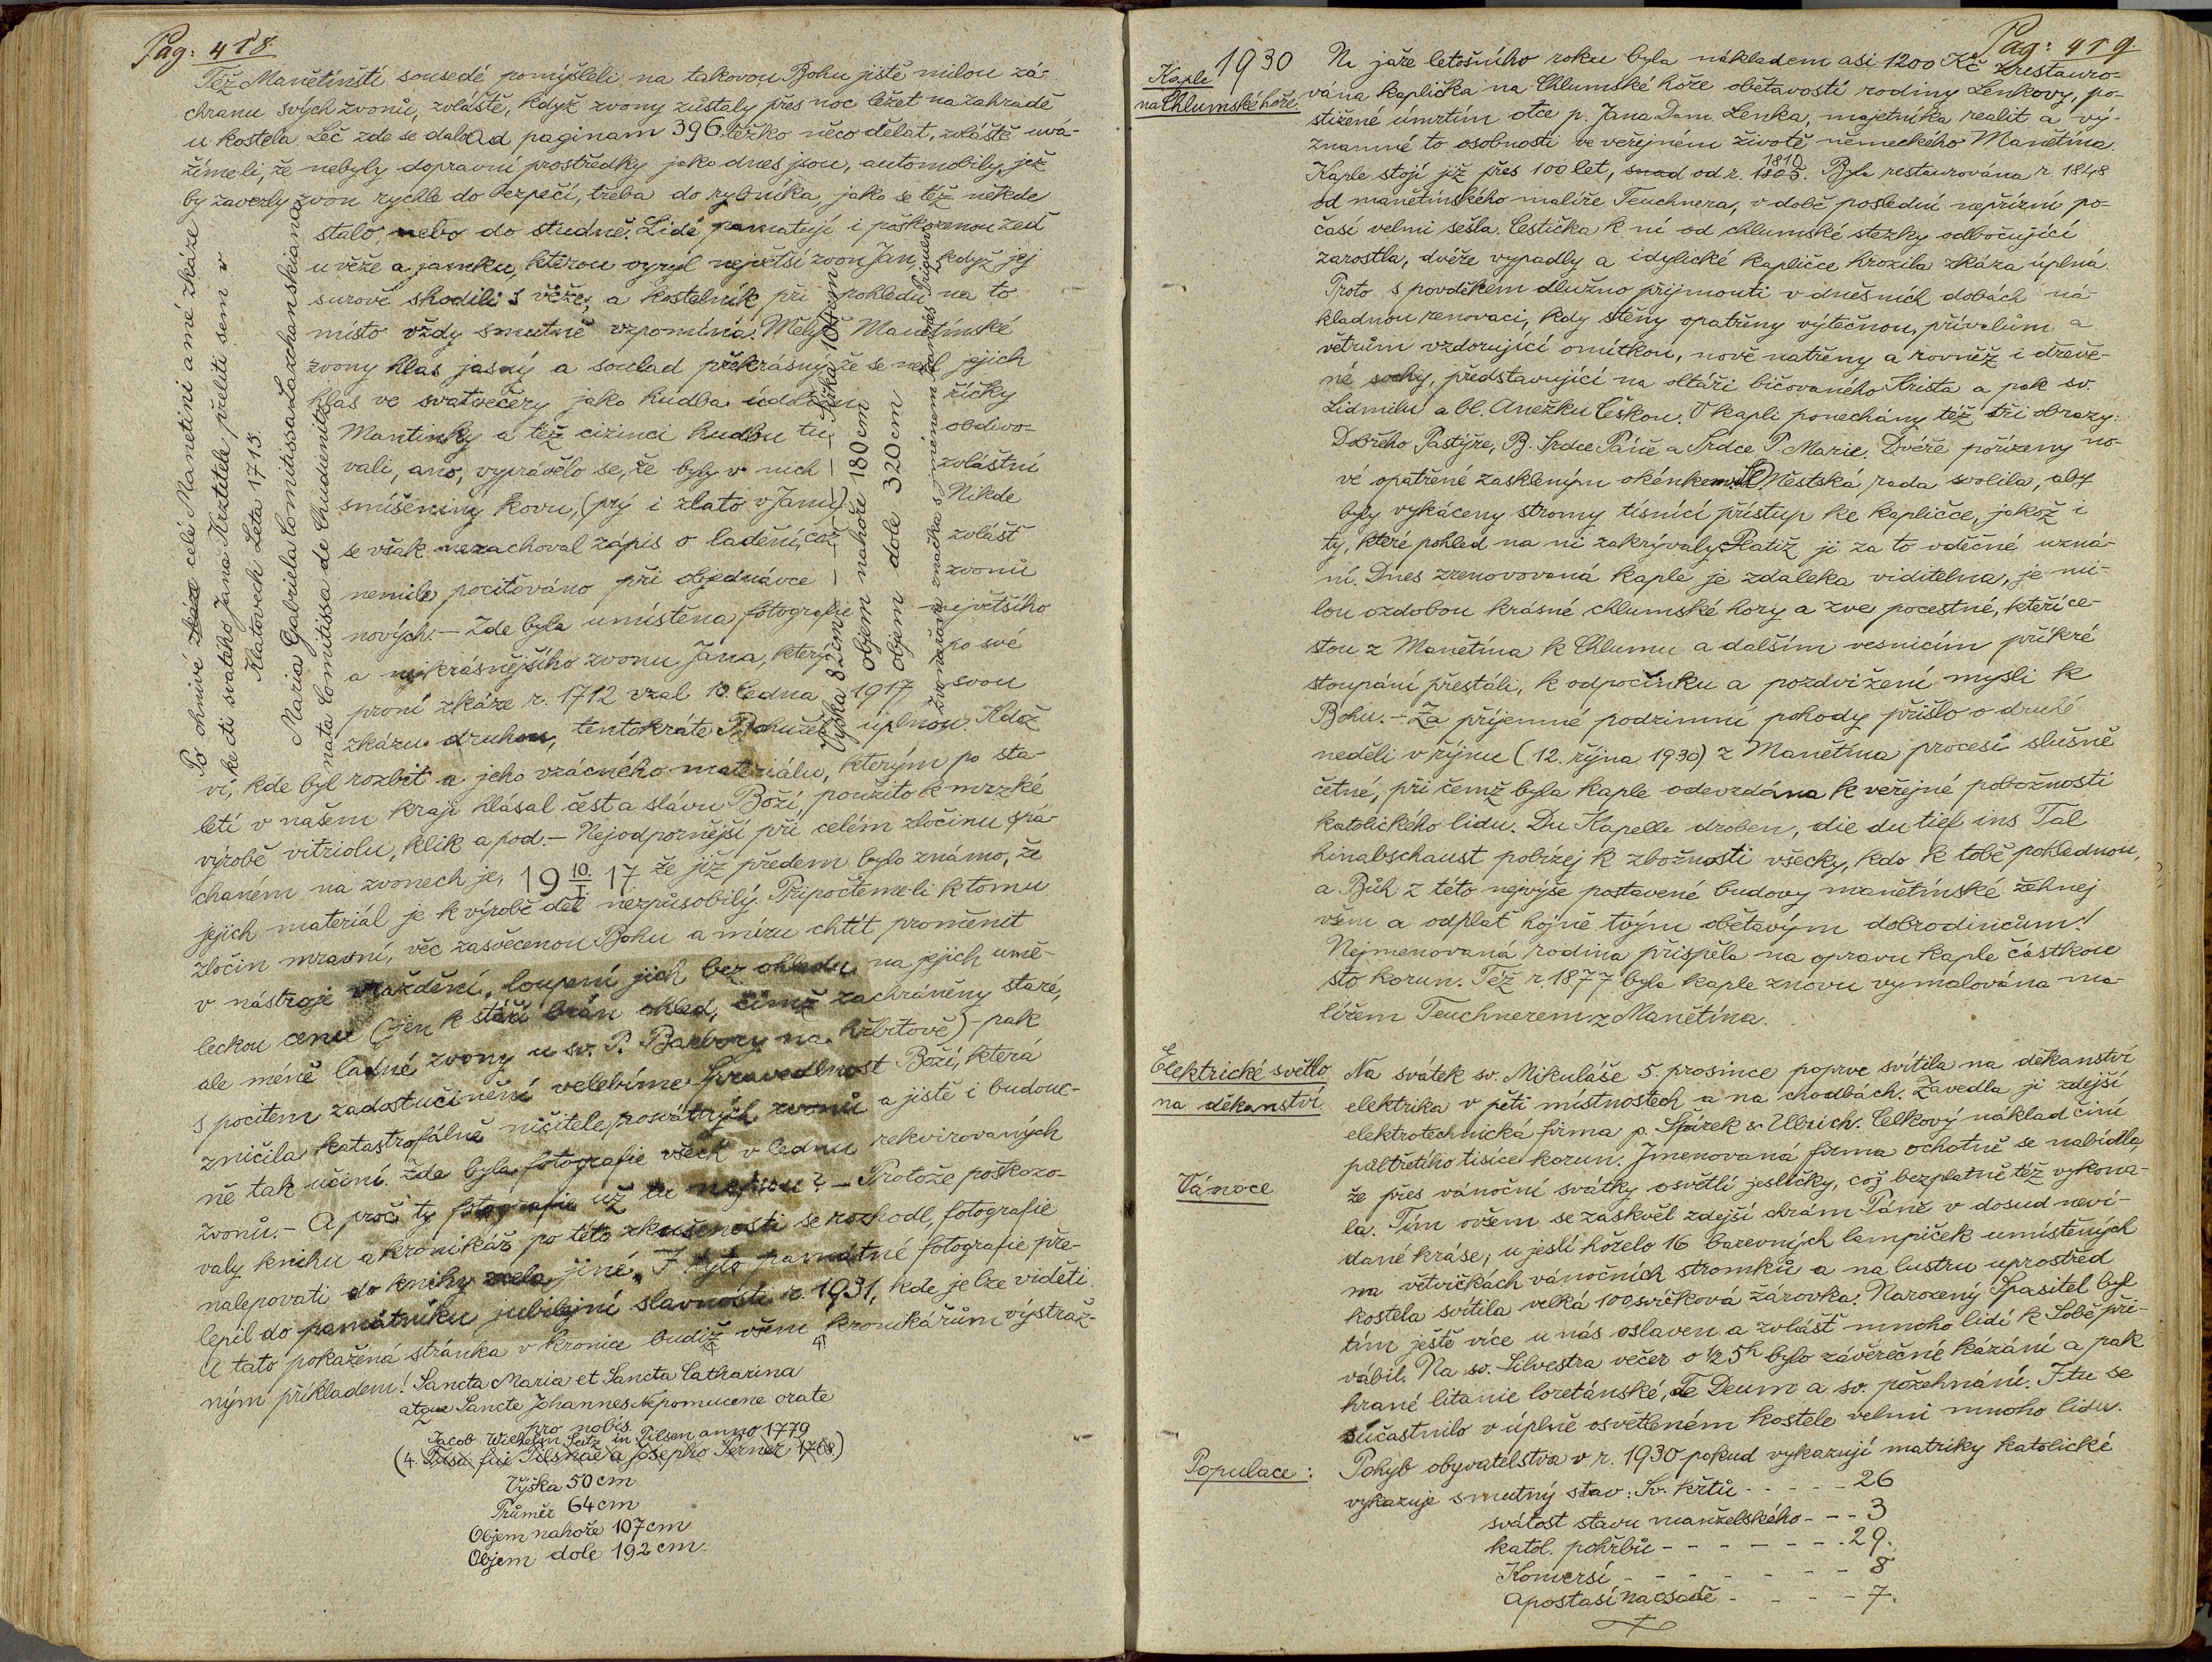 Pag: 418.
Též Manětínští sousedé pomýšleli na takovou Bohu jistě milou zá-
chranu svých zvonů, zvláště, když zvony zůstaly přes noc ležet na zahradě
u kostela. Leč zde se dalo Ad paginam 396. těžko něco dělat, zvláště uvá-
žímeli, že nebyly dopravní prostředky jako dnes jsou, automobily, jež
by zavezly zvon rychle do bezpečí, třeba do rybníka, jako se též někde
stalo, nebo do studně. Lidé pamatují i poškozenou zeď
u věže a jamku, kterou vyryl největší zvon Jan, když jej
surově shodili s věže, a kostelník při pohledu na to
místo vždy smutně vzpomíná. Mělyť Manětínské
zvony hlas jasný a soulad překrásný, že se nesl jejich
hlas ve svatvečery jako hudba údolím říčky
Mantinky a též cizinci hudbu tu obdivo-
vali, ano, vyprávělo se, že byly v nich zvláštní
smíšeniny kovu, (prý i zlato v Janu). Nikde
se však nezachoval zápis o ladění, což zvlášť
nemile pociťováno při objednávce zvonů
nových. – Zde byla umístěna fotografie největšího
a nejkrásnějšího zvonu Jana, který po své
první zkáze r. 1712 vzal 10. ledna 1917 svou
zkázu druhou, tentokráte Bohužel úplnou. Kdož
ví, kde byl rozbit a jeho vzácného materiálu, kterým po sta-
letí v našem kraji hlásal čest a slávu Boží, použito k mrzké
výrobě vitriolu, klik a pod. – Nejodpornější při celém zločinu spá-
chaném na zvonech je, 19 10./I. 17 že již předem bylo známo, že
jejich materiál je k výrobě děl nezpůsobilý. Připočtemeli k tomu
zločin mravní, věc zasvěcenou Bohu a míru chtít proměnit
v nástroje vraždění, loupení jich bez ohledu na jejich umě-
leckou cenu (jen k stáří brán ohled, čímž zachráněny staré,
ale méně ladné zvony u sv. P. Barbory na hřbitově) – pak
s pocitem zadostučinění velebíme Spravedlnost Boží, která
zničila katastrofálně ničitele posvátných zvonů a jistě i budouc-
ně tak učiní. Zde byla fotografie všech v lednu rekvirovaných
zvonů. – A proč ty fotografie už tu nejsou? – Protože poškozo-
valy knihu a kronikář po této zkušenosti se rozhodl, fotografie
nalepovati do knihy zcela jiné. I tyto památné fotografie pře-
lepil do památníku jubilejní slavnosti r. 1931, kde je lze viděti.
A tato pokažená stránka v kronice budiž všem kronikářům výstraž-
ným příkladem! Sancta Maria et Sancta Catharina
atque Sancte Johannes Nepomucene orate
pro nobis.
Jacob Wilhelm Seitz in Pilsen anno 1779
(4. Fusa fui Pilsnae a Josepho Perner 1768)
Výška 50 cm
Průměr 64 cm
Objem nahoře 107 cm
Objem dole 192 cm.
Po ohnivé zkáze celé Manetini a mé zkáze
ke cti svatého Jana Krztitele přeliti sem v
Klatovech Leta 1713.
Maria Gabriela Comitissa Lazchanskiana
nata Comitissa de Chudienitz
Výška 82 cm – – – – šířka 104 cm
objem nahoře 180 cm
objem dole 320 cm
Pag: 419.
1930
Kaple
na Chlumské hoře.
Na jaře letošního roku byla nákladem asi 1200 Kč zrestauro-
vána kaplička na Chlumské hoře obětavostí rodiny Lenkovy, po-
stižené úmrtím otce p. Jana Dom. Lenka, majetníka realit a vý-
znamné to osobnosti ve veřejném životě německého Manětína.
Kaple stojí již přes 100 let, snad od r. 1805. 1810. Byla restaurována r. 1848
od manětínského malíře Teuchnera, v době poslední nepřízní po-
časí velmi sešla. Cestička k ní od chlumské stezky odbočující
zarostla, dvéře vypadly a idylické kapličce hrozila zkáza úplná.
Proto s povděkem dlužno přijmouti v dnešních dobách ná-
kladnou renovaci, kdy stěny opatřeny výtečnou, přívalům a
větrům vzdorující omítkou, nově natřeny a rovněž i dřevě-
né sochy, představující na oltáři bičovaného Krista a pak sv.
Lidmilu a bl. Anežku Českou. V kapli ponechány též tři obrazy:
Dobrého Pastýře, B. Srdce Páně a Srdce P. Marie. Dvéře pořízeny no-
vé opatřené zaskleným okénkem. Městská rada svolila, aby
byly vykáceny stromy tísnící přístup ke kapličce, jakož i
ty, které pohled na ni zakrývaly. Platiž jí za to vděčné uzná-
ní. Dnes zrenovovaná kaple je zdaleka viditelna, je mi-
lou ozdobou krásné chlumské hory a zve pocestné, kteří ce-
stou z Manětína k Chlumu a dalším vesnicím příkré
stoupání přestáli, k odpočinku a pozdvižení mysli k
Bohu. – Za příjemné podzimní pohody přišlo o druhé
neděli v říjnu (12. října 1930) z Manětína procesí slušně
četné, při čemž byla kaple odevzdána k veřejné pobožnosti
katolického lidu. Du Kapelle droben, die du tief ins Tal
hinabschaust pobízej k zbožnosti všecky, kdo k tobě pohlednou,
a Bůh z této nejvýše postavené budovy manětínské žehnej
všem a odplať hojně tvým obětavým dobrodincům!
Nejmenovaná rodina přispěla na opravu kaple částkou
sto korun. Též r. 1877 byla kaple znovu vymalována ma-
lířem Teuchnerem z Manětína.
Elektrické světlo
na děkanství.
Na svátek sv. Mikuláše 5 prosince poprve svítila na děkanství
elektrika v pěti místnostech a na chodbách. Zavedla ji zdejší
elektrotechnická firma p. Špirek & Ullrich. Celkový náklad činí
půltřetího tisíce korun. Jmenovaná firma ochotně se nabídla,
Vánoce
že přes vánoční svátky osvětlí jesličky, což bezplatně též vykona-
la. Tím ovšem se zaskvěl zdejší chrám Páně v dosud neví-
dané kráse; u jeslí hořelo 16 barevných lampiček umístěných
na větvičkách vánočních stromků a na lustru uprostřed
kostela svítila velká 100 svíčková žárovka. Narozený Spasitel byl
tím ještě více u nás oslaven a zvlášť mnoho lidí k Sobě při-
vábil. Na sv. Silvestra večer o ½ 5h bylo závěrečné kázání a pak
hrané litanie loretánské, Te Deum a sv. požehnání. I tu se
súčastnilo v úplně osvětleném kostele velmi mnoho lidu.
Populace:
Pohyb obyvatelstva v r. 1930 pokud vykazují matriky katolické
vykazuje smutný stav: Sv. křtů - - - - - 26
svátost stavu manželského - - - 3
katol. pohřbů - - - - - - - 29.
Konversí - - - - - - - 8
Apostasí na osadě - - - - 7.